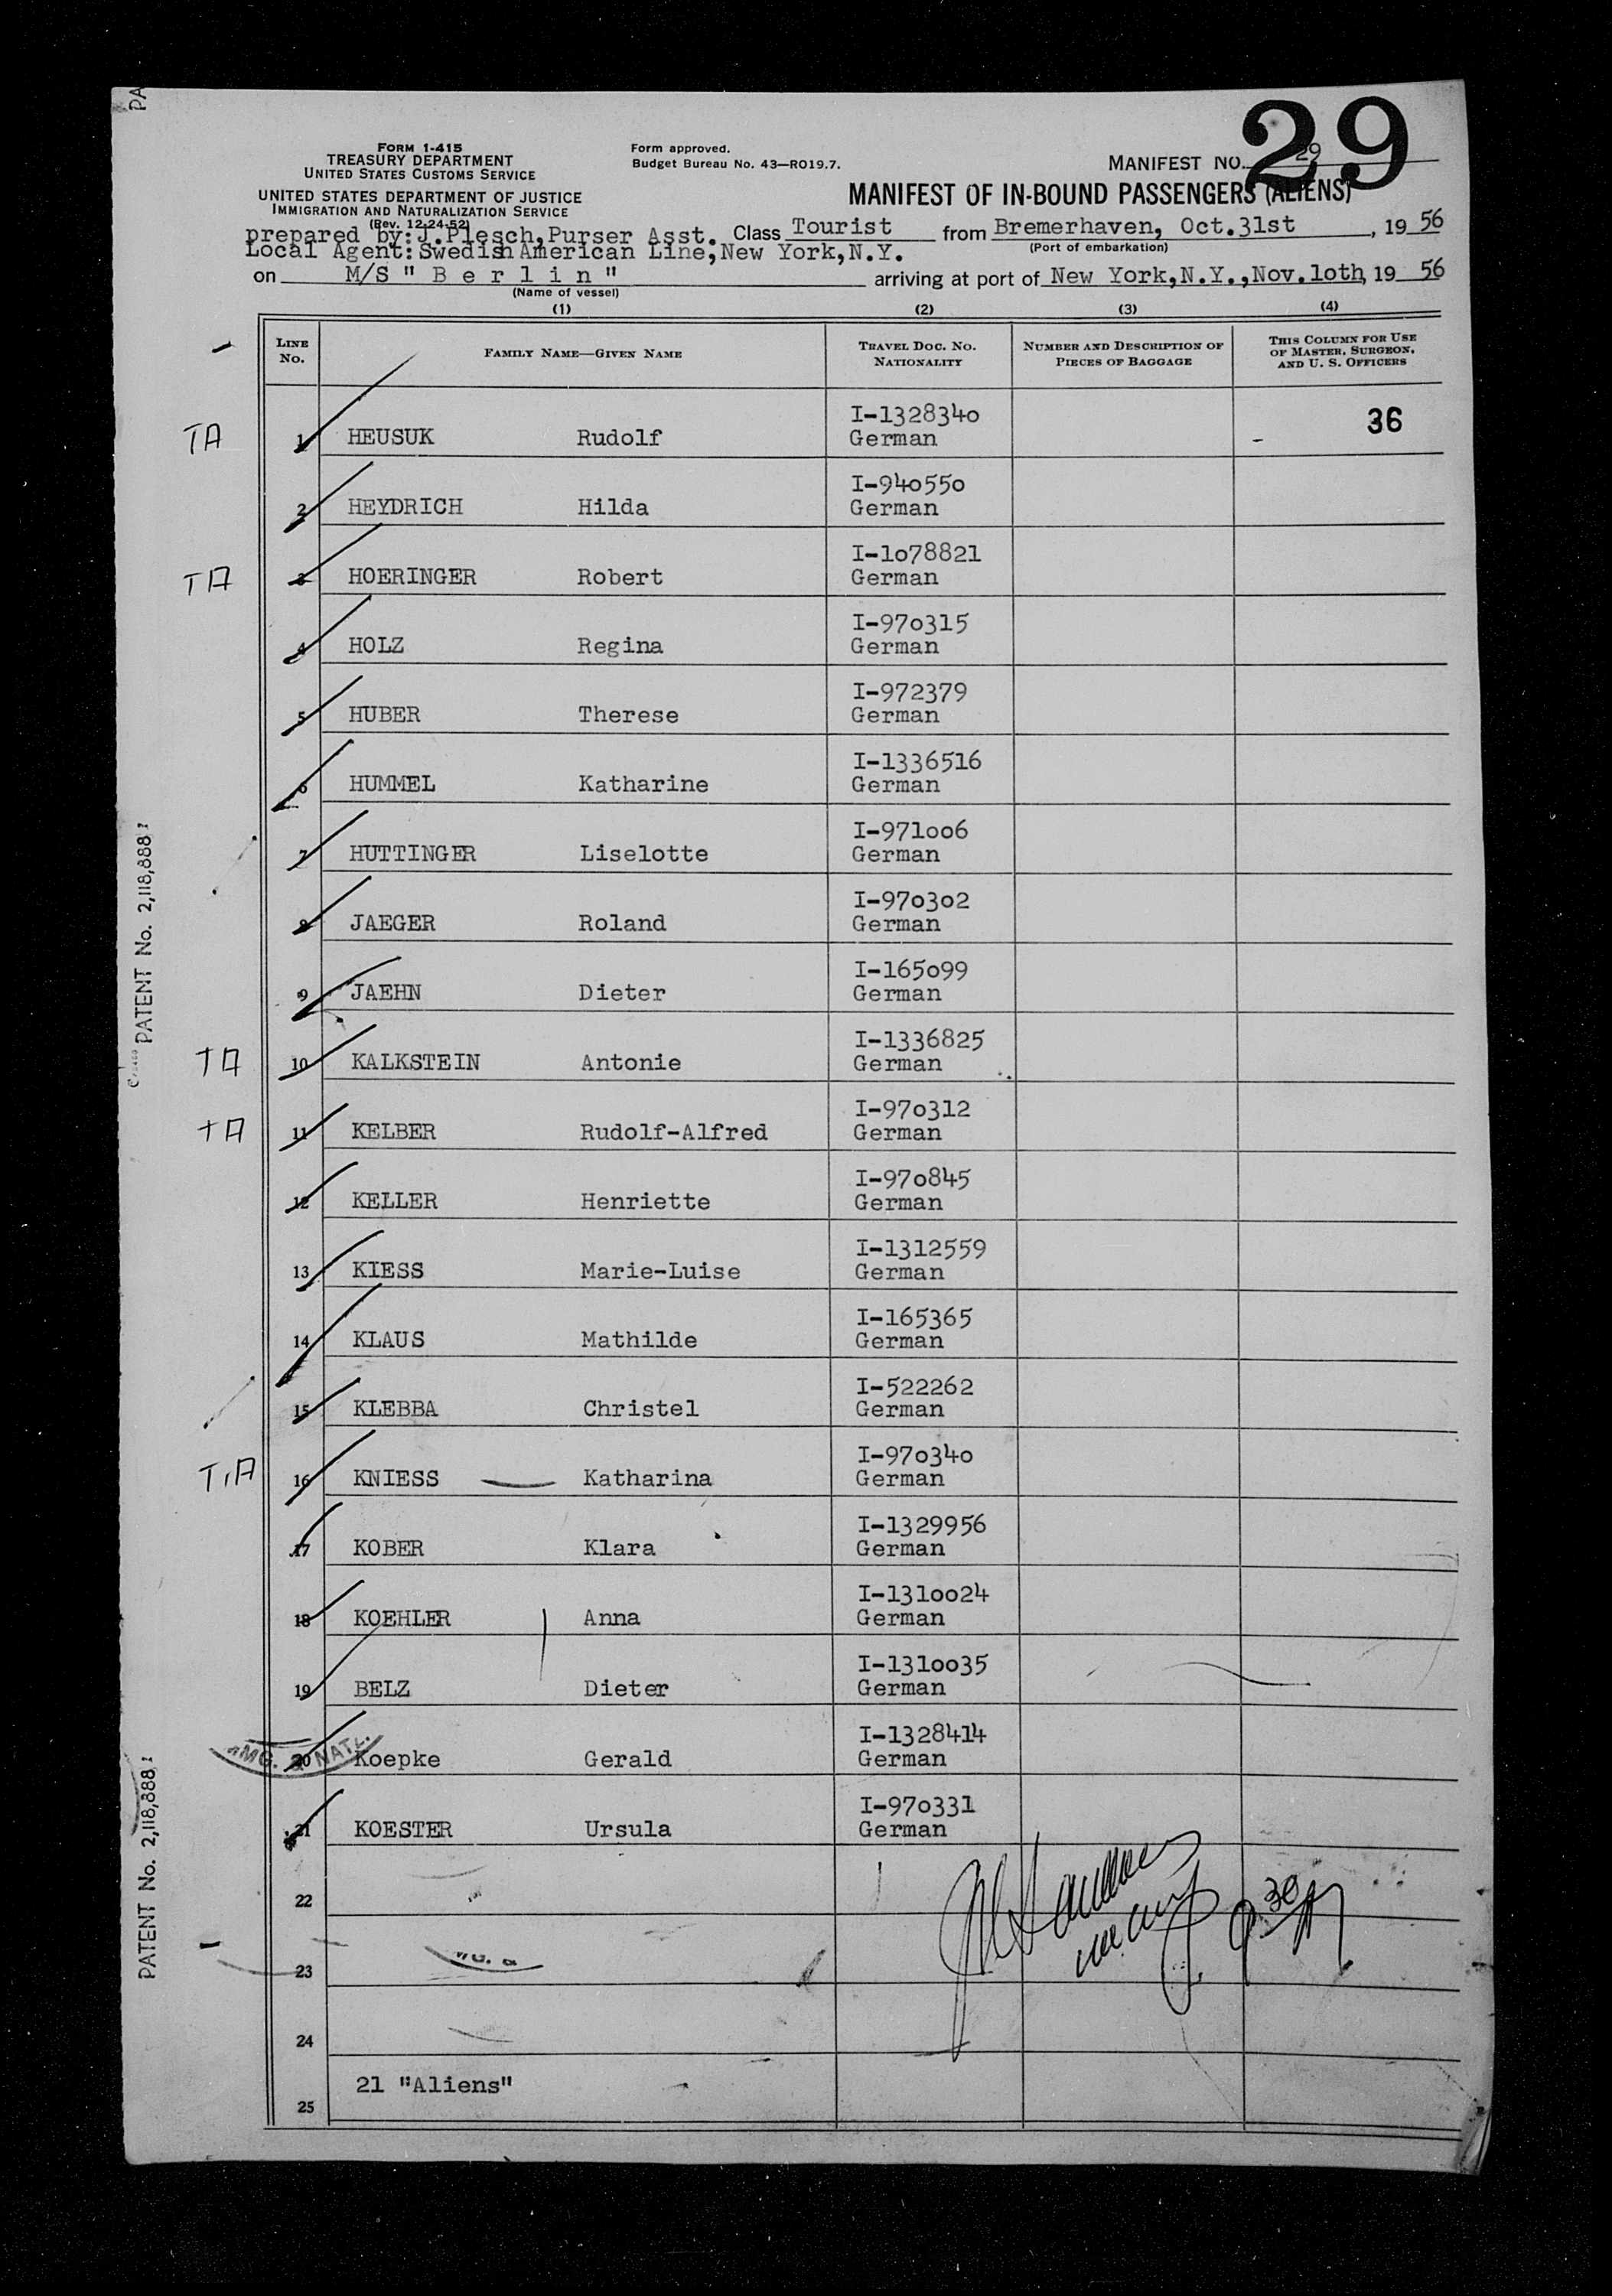 PA
29
FORM I-415
TREASURY DEPARTMENT
UNITED STATES CUSTOMS SERVICE
UNITED STATES DEPARTMENT OF JUSTICE
IMMIGRATION AND NATURALIZATION SERVICE
(Rev. 12-24-52)
Form approved.
Budget Bureau No. 43—RO19.7.
MANIFEST NO. 29
MANIFEST OF IN-BOUND PASSENGERS (ALIENS)
prepared by: J.Plesch, Purser Asst. Class Tourist from Bremerhaven, Oct.31st, 1956
Local Agent: Swedish American Line, New York, N.Y. (Port of embarkation)
on M/S " B e r l i n " arriving at port of New York, N.Y., Nov.loth, 1956
(Name of vessel)
(1) (2) (3) (4)
LINE NO. FAMILY NAME—GIVEN NAME TRAVEL DOC. NO. NATIONALITY NUMBER AND DESCRIPTION OF PIECES OF BAGGAGE THIS COLUMN FOR USE OF MASTER, SURGEON, AND U. S. OFFICERS
I-1328340 36
TA 1 HEUSUK Rudolf German -
I-940550
2 HEYDRICH Hilda German
I-1o78821
TA 3 HOERINGER Robert German
I-970315
4 HOLZ Regina German
I-972379
5 HUBER Therese German
I-1336516
6 HUMMEL Katharine German
I-971006
7 HUTTINGER Liselotte German
I-970302
8 JAEGER Roland German
I-165099
9 JAEHN Dieter German
I-1336825
TA 10 KALKSTEIN Antonie German
I-970312
TA 11 KELBER Rudolf-Alfred German
I-970845
12 KELLER Henriette German
I-1312559
13 KIESS Marie-Luise German
I-165365
14 KLAUS Mathilde German
I-522262
15 KLEBBA Christel German
I-970340
T,A 16 KNIESS Katharina German
I-1329956
17 KOBER Klara German
I-1310024
18 KOEHLER Anna German
I-1310035
19 BELZ Dieter German
I-1328414
20 Koepke Gerald German
IMG. & NATZ.
I-970331
21 KOESTER Ursula German
22
23
24
21 "Aliens"
25
PATENT No. 2,118,888
PATENT No. 2,118,888